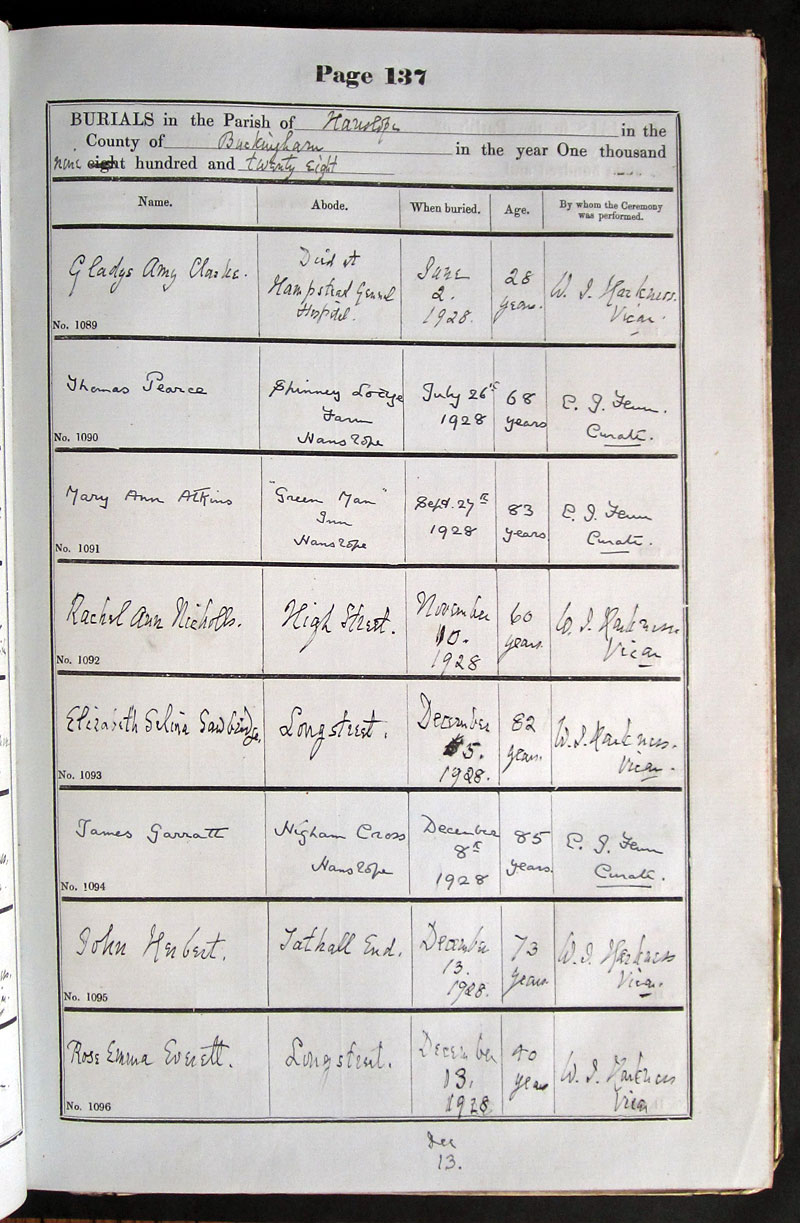 Page 137
BURIALS in the Parish of Hanslope in the
County of Buckingham in the year One thousand
nine eight hundred and twenty eight
Name. Abode. When buried. Age. By whom the Ceremony was performed.
Gladys Amy Clarke.
Died at
Hampstead General
Hospital.
June
2.
1928.
28
years.
W. J. Harkness.
Vicar.
No. 1089
Thomas Pearce
Spinney Lodge
Farm
Hanslope
July 26th
1928
68
years
E. J. Fenn.
Curate.
No. 1090
Mary Ann Atkins
"Green Man"
Inn
Hanslope
Sept. 27th
1928
83
years
E. J. Fenn
Curate.
No. 1091
Rachel Ann Nicholls.
High Street.
November
10.
1928
60
years.
W. J. Harkness
Vicar
No. 1092
Elizabeth Selina Sawbridge.
Longstreet.
December
5.
1928.
82
years.
W. J. Harkness.
Vicar.
No. 1093
James Garratt
Higham Cross
Hanslope
December
8th
1928
85
years.
E. J. Fenn
Curate.
No. 1094
John Herbert.
Tathall End.
December
13.
1928.
73
years.
W. J. Harkness
Vicar.
No. 1095
Rose Emma Everett.
Longstreet.
December
13.
1928
years
W. J. Harkness
Vicar
No. 1096
Dec
13.